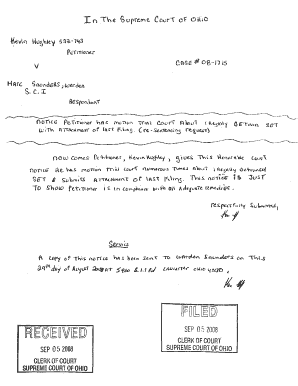 In The Supreme Court of Ohio
Kevin Hughley
Petitioner
V
CASE # 08-1715
Marc Saunders, Warden
S.C.I
Respondant
NOTICE Petitioner has motion trial court About illegally
with Attachment of last Filing. (re-sentencing request)
Now comes Petitioner, Kevin Hughley, gives This Honorable court
notice he has motion trial court numerous times About illegally
& Submits Attachment of last Filing. This notice is JUST
TO Show Petitioner is in compliance with an Adequate
Respectfully Submitted,
Service
A copy of This notice has been sent to Warden Saunders on This
29th day of August 2008 AT
RECEIVED
SEP 05 2008
CLERK OF COURT
SUPREME COURT OF OHIO
FILED
SEP 05 2008
CLERK OF COURT
SUPREME COURT OF OHIO